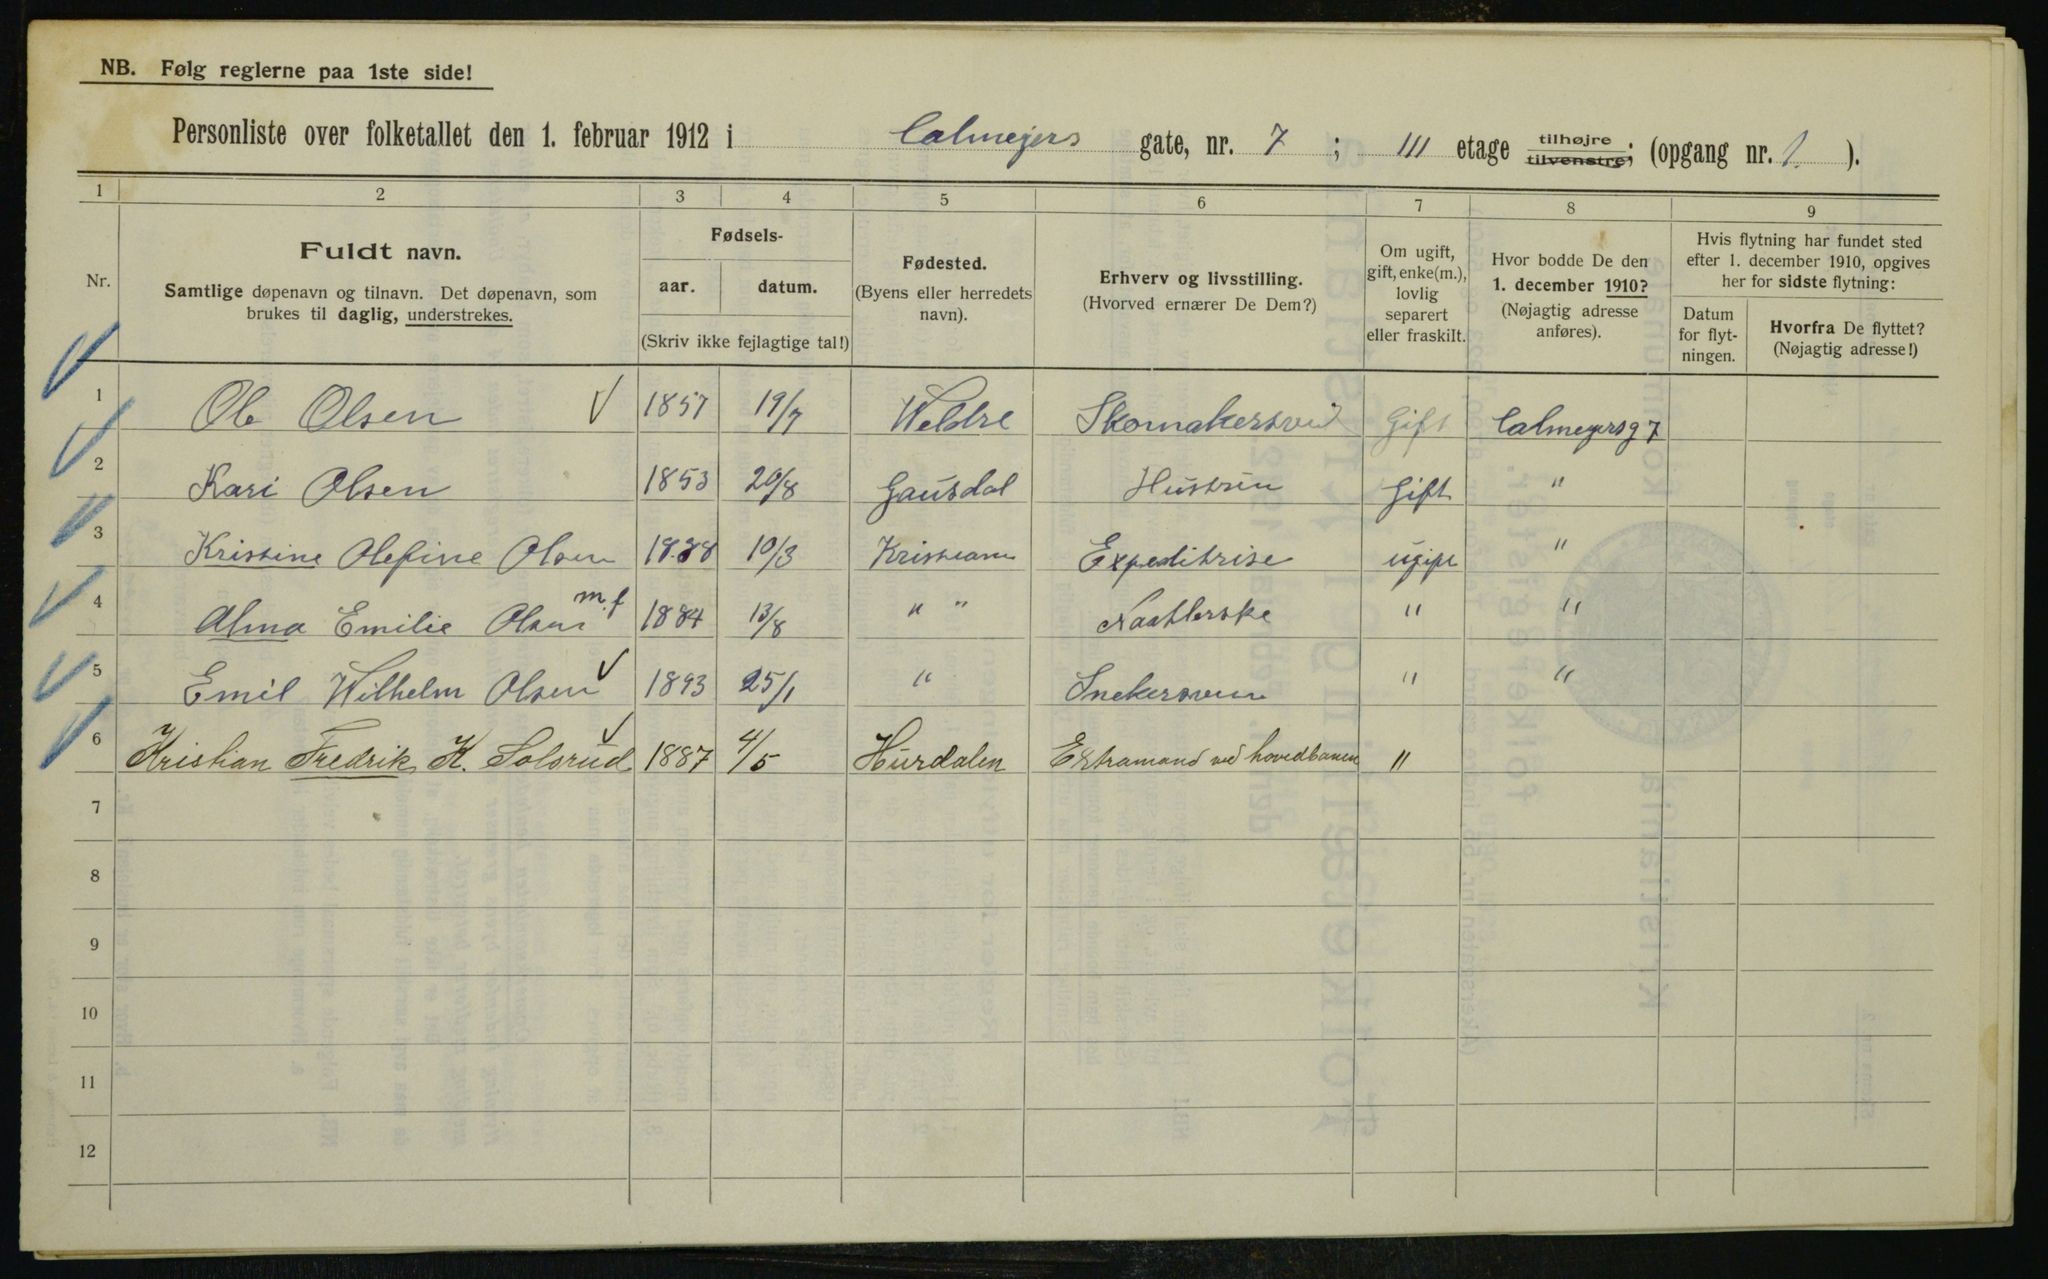 NB. Følg reglerne paa 1ste side!
Personliste over folketallet den 1. februar 1912 i Calmejers gate, nr. 7 ; III etage tilhøjre tilvenstre; (opgang nr. 1. ).
1 2 3 4 5 6 7 8 9
Nr.
Fuldt navn.
Samtlige døpenavn og tilnavn. Det døpenavn, som
brukes til daglig, understrekes.
Fødsels-
aar. datum.
(Skriv ikke fejlagtige tal!)
Fødested.
(Byens eller herredets
navn).
Erhverv og livsstilling.
(Hvorved ernærer De Dem?)
Om ugift,
gift, enke(m.),
lovlig
separert
eller fraskilt.
Hvor bodde De den
1. december 1910?
(Nøjagtig adresse
anføres).
Hvis flytning har fundet sted
efter 1. december 1910, opgives
her for sidste flytning:
Datum
for flyt-
ningen.
Hvorfra De flyttet?
(Nøjagtig adresse!)
1 Ole Olsen 1857 19/7 Weldre Skomakersvend Gift Calmeyersg 7
2 Kari Olsen 1853 20/8 Gausdal Hustru Gift "
3 Kristine Olefine Olsen 1888 10/3 Kristiania Expeditrise ugift "
4 Alma Emilie Olsen m.f 1884 13/8 " " Naatlerske " "
5 Emil Wilhelm Olsen 1893 25/1 " Snekersven " "
6 Kristian Fredrik K. Solsrud 1887 4/5 Hurdalen Extramand ved hovedbanen "
7
8
9
10
11
12